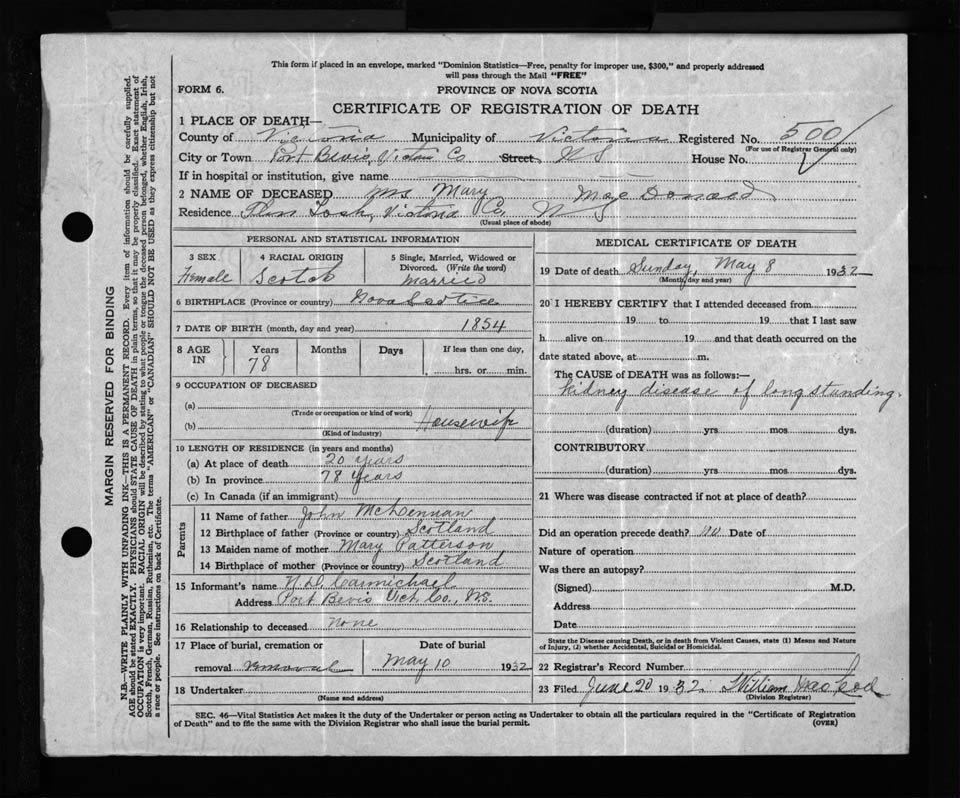 This form if placed in an envelope, marked "Dominion Statistics—Free, penalty for improper use, $300," and properly addressed
will pass through the Mail "FREE"
FORM 6. PROVINCE OF NOVA SCOTIA
CERTIFICATE OF REGISTRATION OF DEATH
1 PLACE OF DEATH—
County of Victoria Municipality of Victoria Registered No. 500
(For use of Registrar General only)
City or Town Port Bevis, Victoria Co Street N S House No.
If in hospital or institution, give name
2 NAME OF DECEASED Mrs. Mary MacDonald
Residence Victoria Co. N
(Usual place of abode)
PERSONAL AND STATISTICAL INFORMATION
3 SEX 4 RACIAL ORIGIN 5 Single, Married, Widowed or
Divorced. (Write the word)
Female Scotch Married
6 BIRTHPLACE (Province or country) Nova Scotia
7 DATE OF BIRTH (month, day and year) 1854
8 AGE IN Years Months Days If less than one day,
78 hrs. or min.
9 OCCUPATION OF DECEASED
(a)
(Trade or occupation or kind of work)
(b) Housewife
(Kind of industry)
10 LENGTH OF RESIDENCE (in years and months)
(a) At place of death 20 years
(b) In province 78 years
(c) In Canada (if an immigrant)
Parents
11 Name of father John McLennan
12 Birthplace of father (Province or country) Scotland
13 Maiden name of mother Mary Patterson
14 Birthplace of mother (Province or country) Scotland
15 Informant's name N. D. Carmichael
Address Port Bevis Vict. Co., N.S.
16 Relationship to deceased none
17 Place of burial, cremation or Date of burial
removal removal May 10 1932
18 Undertaker
(Name and address)
MEDICAL CERTIFICATE OF DEATH
19 Date of death Sunday, May 8 1932
(Month, day and year)
20 I HEREBY CERTIFY that I attended deceased from
19 to 19 that I last saw
h alive on 19 and that death occurred on the
date stated above, at m.
The CAUSE of DEATH was as follows:—
Kidney disease of long standing.
(duration) yrs mos dys.
CONTRIBUTORY
(duration) yrs mos dys.
21 Where was disease contracted if not at place of death?
Did an operation precede death? no Date of
Nature of operation
Was there an autopsy?
(Signed) M.D.
Address
Date
State the Disease causing Death, or in death from Violent Causes, state (1) Means and Nature
of Injury, (2) whether Accidental, Suicidal or Homicidal.
22 Registrar's Record Number
23 Filed June 20 1932 William MacLeod
(Division Registrar)
SEC. 46—Vital Statistics Act makes it the duty of the Undertaker or person acting as Undertaker to obtain all the particulars required in the "Certificate of Registration
of Death" and to file the same with the Division Registrar who shall issue the burial permit. (OVER)
MARGIN RESERVED FOR BINDING
N.B.—WRITE PLAINLY WITH UNFADING INK—THIS IS A PERMANENT RECORD. Every item of information should be carefully supplied.
AGE should be stated EXACTLY. PHYSICIANS should STATE CAUSE OF DEATH in plain terms, so that it may be properly classified. Exact statement of
OCCUPATION is very important. RACIAL ORIGIN will be described by stating to what people or tongue the deceased person belonged, whether English, Irish,
Scotch, French, German, Russian, Ruthenian, etc. The terms "AMERICAN" or "CANADIAN" SHOULD NOT BE USED as they express citizenship but not
a race or people. See instructions on back of Certificate.